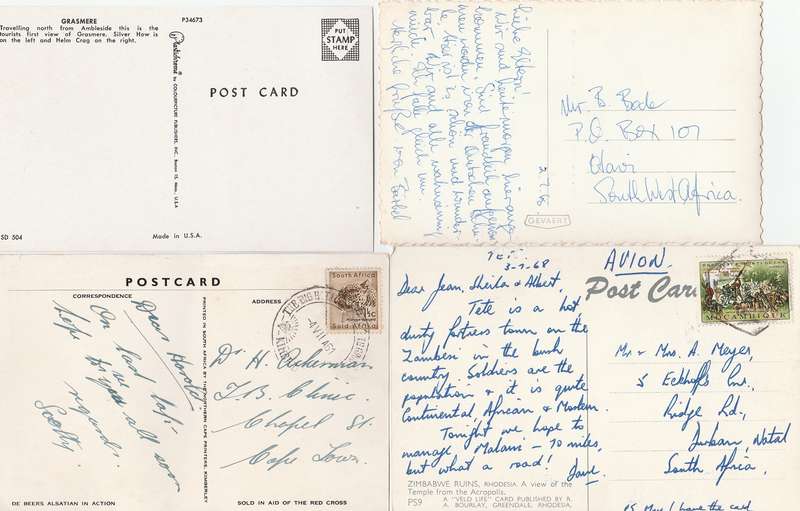 GRASMERE
Travelling north from Ambleside this is the
tourists first view of Grasmere. Silver How is
on the left and Helm Crag on the right.
P34673
PUT
STAMP
HERE
POST CARD
Plastichrome® by COLOURPICTURE PUBLISHERS, INC. Boston 15, Mass., U.S.A.
SD 504
Made in U.S.A.
Liebe Eltern!
Wir sind heute morgen hier ange-
kommen. Sind freundlich aufgenom-
men worden von der
ist schön und wunder-
Wir sind alle
müde.
Herzliche Grüße von
2.7.65
GEVAERT
Mr. B. Bode
P.O. Box 107
Otavi
South West Africa.
POSTCARD
CORRESPONDENCE
ADDRESS
Dear Harold
On last lap-
hope to see
you all soon
regards
Scotty.
PRINTED IN SOUTH AFRICA BY THE NORTHERN CAPE PRINTERS, KIMBERLEY
South Africa
Suid-Afrika
THE BIG HOLE
Dr. H. Ackerman
T.B. Clinic.
Chapel St.
Cape Town.
DE BEERS ALSATIAN IN ACTION
SOLD IN AID OF THE RED CROSS
3-7-68
AVION
Post Card
MOÇAMBIQUE
Dear Jean, Sheila & Albert,
Tete is a hot
dusty fortress town on the
Zambesi in the bush
country. Soldiers are the
population & it is quite
Continental, African & Moslem.
Tonight we hope to
manage Malawi - 70 miles,
but what a road!
Mr & Mrs. A. Meyer,
5 Eckhoffs
Ridge Rd.,
Durban, Natal
South Africa.
ZIMBABWE RUINS, RHODESIA. A view of the
Temple from the Acropolis.
PS9
A "VELD LIFE" CARD PUBLISHED BY R.
A. BOURLAY, GREENDALE, RHODESIA.
PS. May I have the card